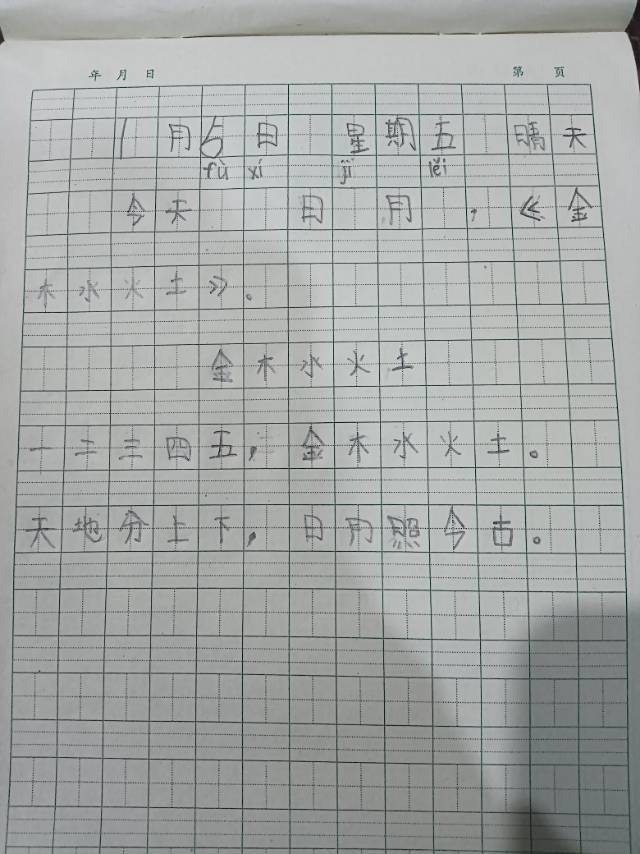 年 月 日 第 页
1月5日 星期五 晴天
fù xí jī lěi
今天 日 月 ，《金
木水火土》。
金木水火土
一二三四五，金木水火土。
天地分上下，日月照今古。